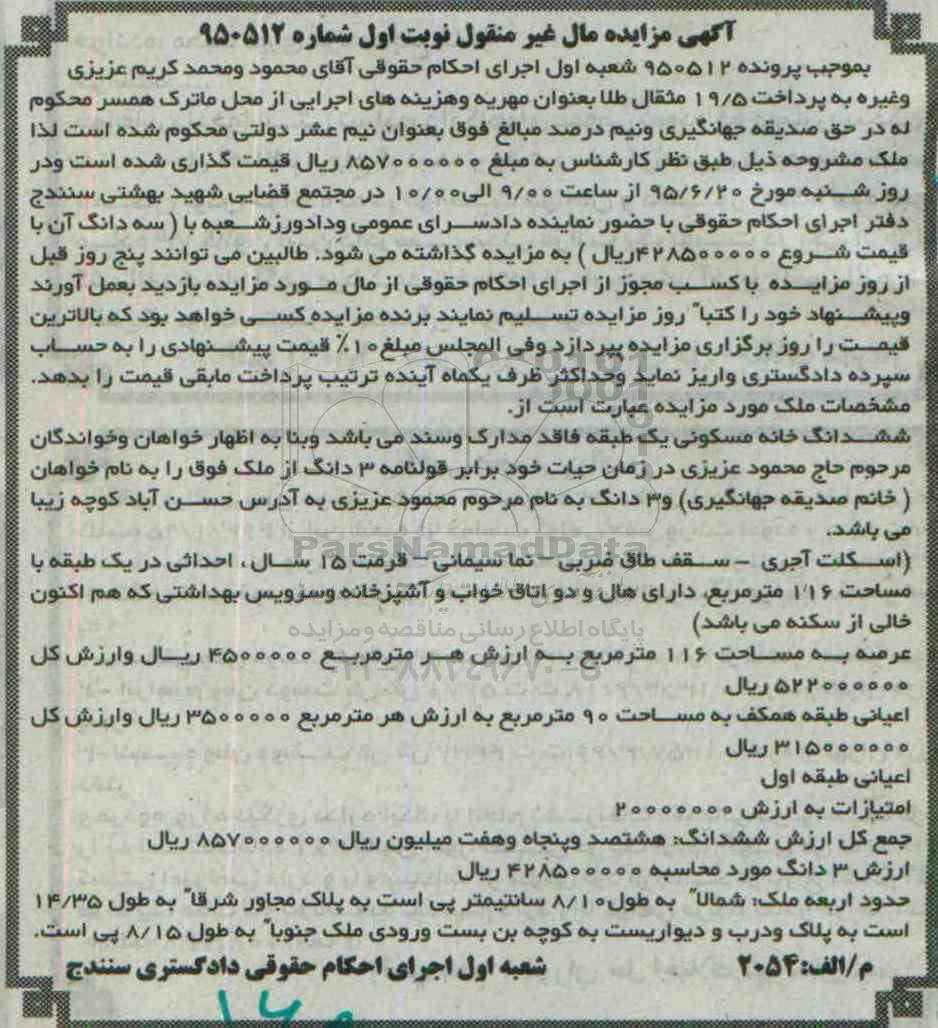 آگهی مزایده مال غیر منقول نوبت اول شماره ۹۵۰۵۱۲
بموجب پرونده ۹۵۰۵۱۲ شعبه اول اجرای احکام حقوقی آقای محمود ومحمد کریم عزیزی
وغیره به پرداخت ۱۹/۵ مثقال طلا بعنوان مهریه وهزینه های اجرایی از محل ماترک همسر محکوم
له در حق صدیقه جهانگیری ونیم درصد مبالغ فوق بعنوان نیم عشر دولتی محکوم شده است لذا
ملک مشروحه ذیل طبق نظر کارشناس به مبلغ ۸۵۷۰۰۰۰۰۰ ریال قیمت گذاری شده است ودر
روز شنبه مورخ ۹۵/۶/۲۰ از ساعت ۹/۰۰ الی۱۰/۰۰ در مجتمع قضایی شهید بهشتی سنندج
دفتر اجرای احکام حقوقی با حضور نماینده دادسرای عمومی ودادورزشعبه با ( سه دانگ آن با
قیمت شروع ۴۲۸۵۰۰۰۰۰ریال ) به مزایده گذاشته می شود. طالبین می توانند پنج روز قبل
از روز مزایده با کسب مجوز از اجرای احکام حقوقی از مال مورد مزایده بازدید بعمل آورند
وپیشنهاد خود را کتباً روز مزایده تسلیم نمایند برنده مزایده کسی خواهد بود که بالاترین
قیمت را روز برگزاری مزایده بپردازد وفی المجلس مبلغ۱۰٪ قیمت پیشنهادی را به حساب
سپرده دادگستری واریز نماید وحداکثر ظرف یکماه آینده ترتیب پرداخت مابقی قیمت را بدهد.
مشخصات ملک مورد مزایده عبارت است از.
ششدانگ خانه مسکونی یک طبقه فاقد مدارک وسند می باشد وبنا به اظهار خواهان وخواندگان
مرحوم حاج محمود عزیزی در زمان حیات خود برابر قولنامه ۳ دانگ از ملک فوق را به نام خواهان
( خانم صدیقه جهانگیری) و۳ دانگ به نام مرحوم محمود عزیزی به آدرس حسن آباد کوچه زیبا
می باشد.
(اسکلت آجری – سقف طاق ضربی – نما سیمانی – قرمت ۱۵ سال، احداثی در یک طبقه با
مساحت ۱۱۶ مترمربع، دارای هال و دو اتاق خواب و آشپزخانه وسرویس بهداشتی که هم اکنون
خالی از سکنه می باشد)
عرصه به مساحت ۱۱۶ مترمربع به ارزش هر مترمربع ۴۵۰۰۰۰۰ ریال وارزش کل
۵۲۲۰۰۰۰۰۰ ریال
اعیانی طبقه همکف به مساحت ۹۰ مترمربع به ارزش هر مترمربع ۳۵۰۰۰۰۰ ریال وارزش کل
۳۱۵۰۰۰۰۰۰ ریال
اعیانی طبقه اول
امتیازات به ارزش ۲۰۰۰۰۰۰۰
جمع کل ارزش ششدانگ: هشتصد وپنجاه وهفت میلیون ریال ۸۵۷۰۰۰۰۰۰ ریال
ارزش ۳ دانگ مورد محاسبه ۴۲۸۵۰۰۰۰۰ ریال
حدود اربعه ملک: شمالاً به طول۸/۱۰ سانتیمتر پی است به پلاک مجاور شرقاً به طول ۱۴/۳۵
است به پلاک ودرب و دیواریست به کوچه بن بست ورودی ملک جنوباً به طول ۸/۱۵ پی است.
م/الف:۲۰۵۴ شعبه اول اجرای احکام حقوقی دادگستری سنندج
ParsNamadData
پایگاه اطلاع رسانی مناقصه و مزایده